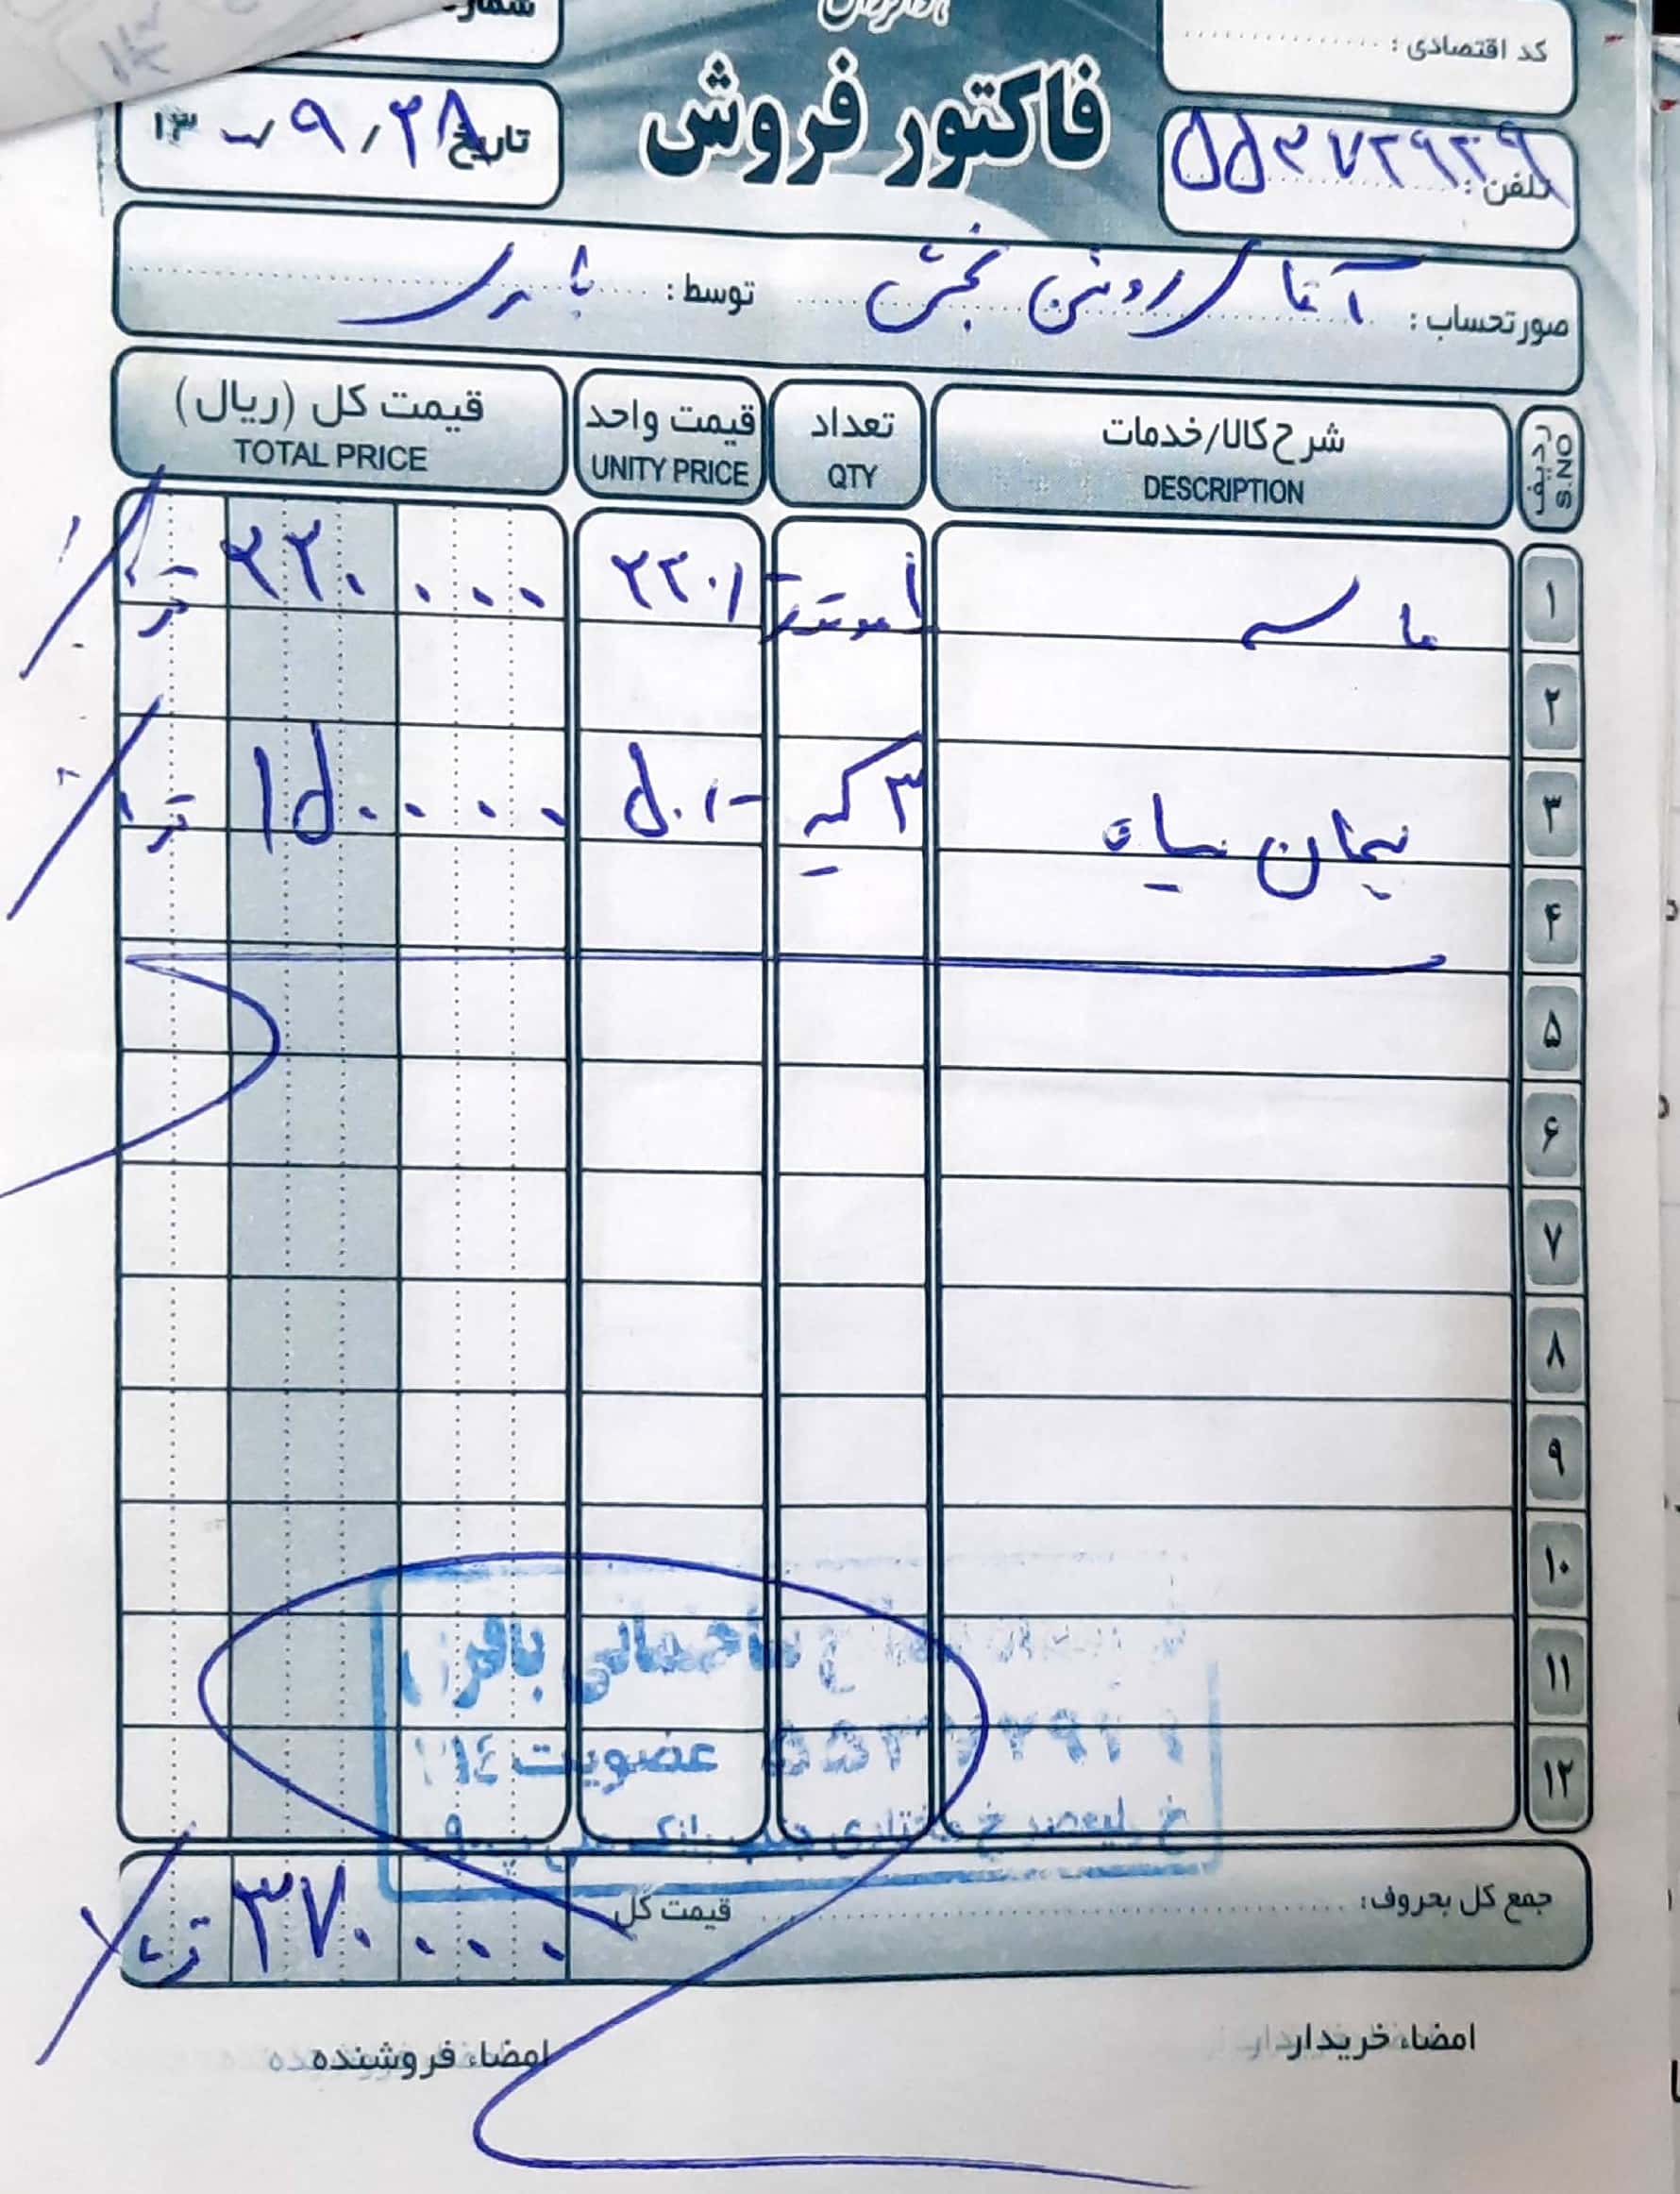 کد اقتصادی :
فاکتور فروش
تلفن : ۵۵۳۷۲۹۲۹
تاریخ ۹/۲۸/ ۱۳
صورتحساب : آقای روشن بخش توسط : باری
ردیف S.NO شرح کالا/خدمات DESCRIPTION تعداد QTY قیمت واحد UNITY PRICE قیمت کل (ریال) TOTAL PRICE
۱ ماسه ۱ ۲۲۰/ ۲۲۰۰۰۰
۲
۳ سیمان سیاه ۳ کیسه ۵۰/- ۱۵۰۰۰۰
۴
۵
۶
۷
۸
۹
۱۰
۱۱
۱۲
مصالح ساختمانی باقرزا
عضویت
جمع کل بحروف: قیمت کل ۳۷۰۰۰۰
امضاء خریدار امضاء فروشنده